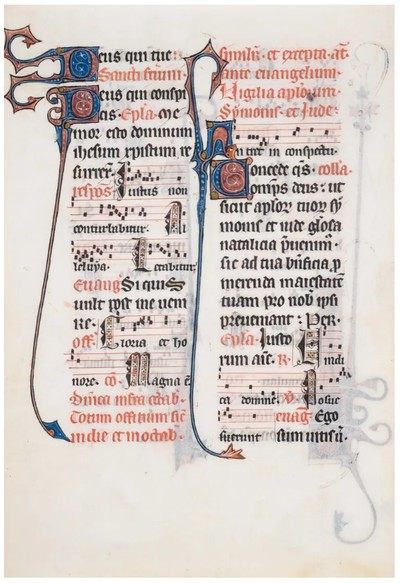 Deus qui tue
Sancti sctium.
Deus qui conspi
cis. Epla. Me
mor esto dominum
ihesum xpistum re
surrex.
respons. Iustus non
conturbabitur. Al
leluya. Letabitur.
Euang. Si quis
uult post me ueni
re.
off. Gloria et ho
nore. co. Magna est
Dnica infra octab.
Totum officium sic
in die et in octab.
similiter et excepta. at.
ante euangelium.
Uigilia aplorum.
Symonis et Iude.
Intret in conspectu.
Concede qs. colla.
omps deus: ut
sicut aplor tuor sy
monis et iude glosa
natalicia
sic ad tua bnficia p
merenda maiestatem
tuam pro nob ipsi
preueniant: Per.
Epla. Iusto
rum aie. R. Uindi
ca domine. V. Posue
runt euag. Ego
sum uitis u.